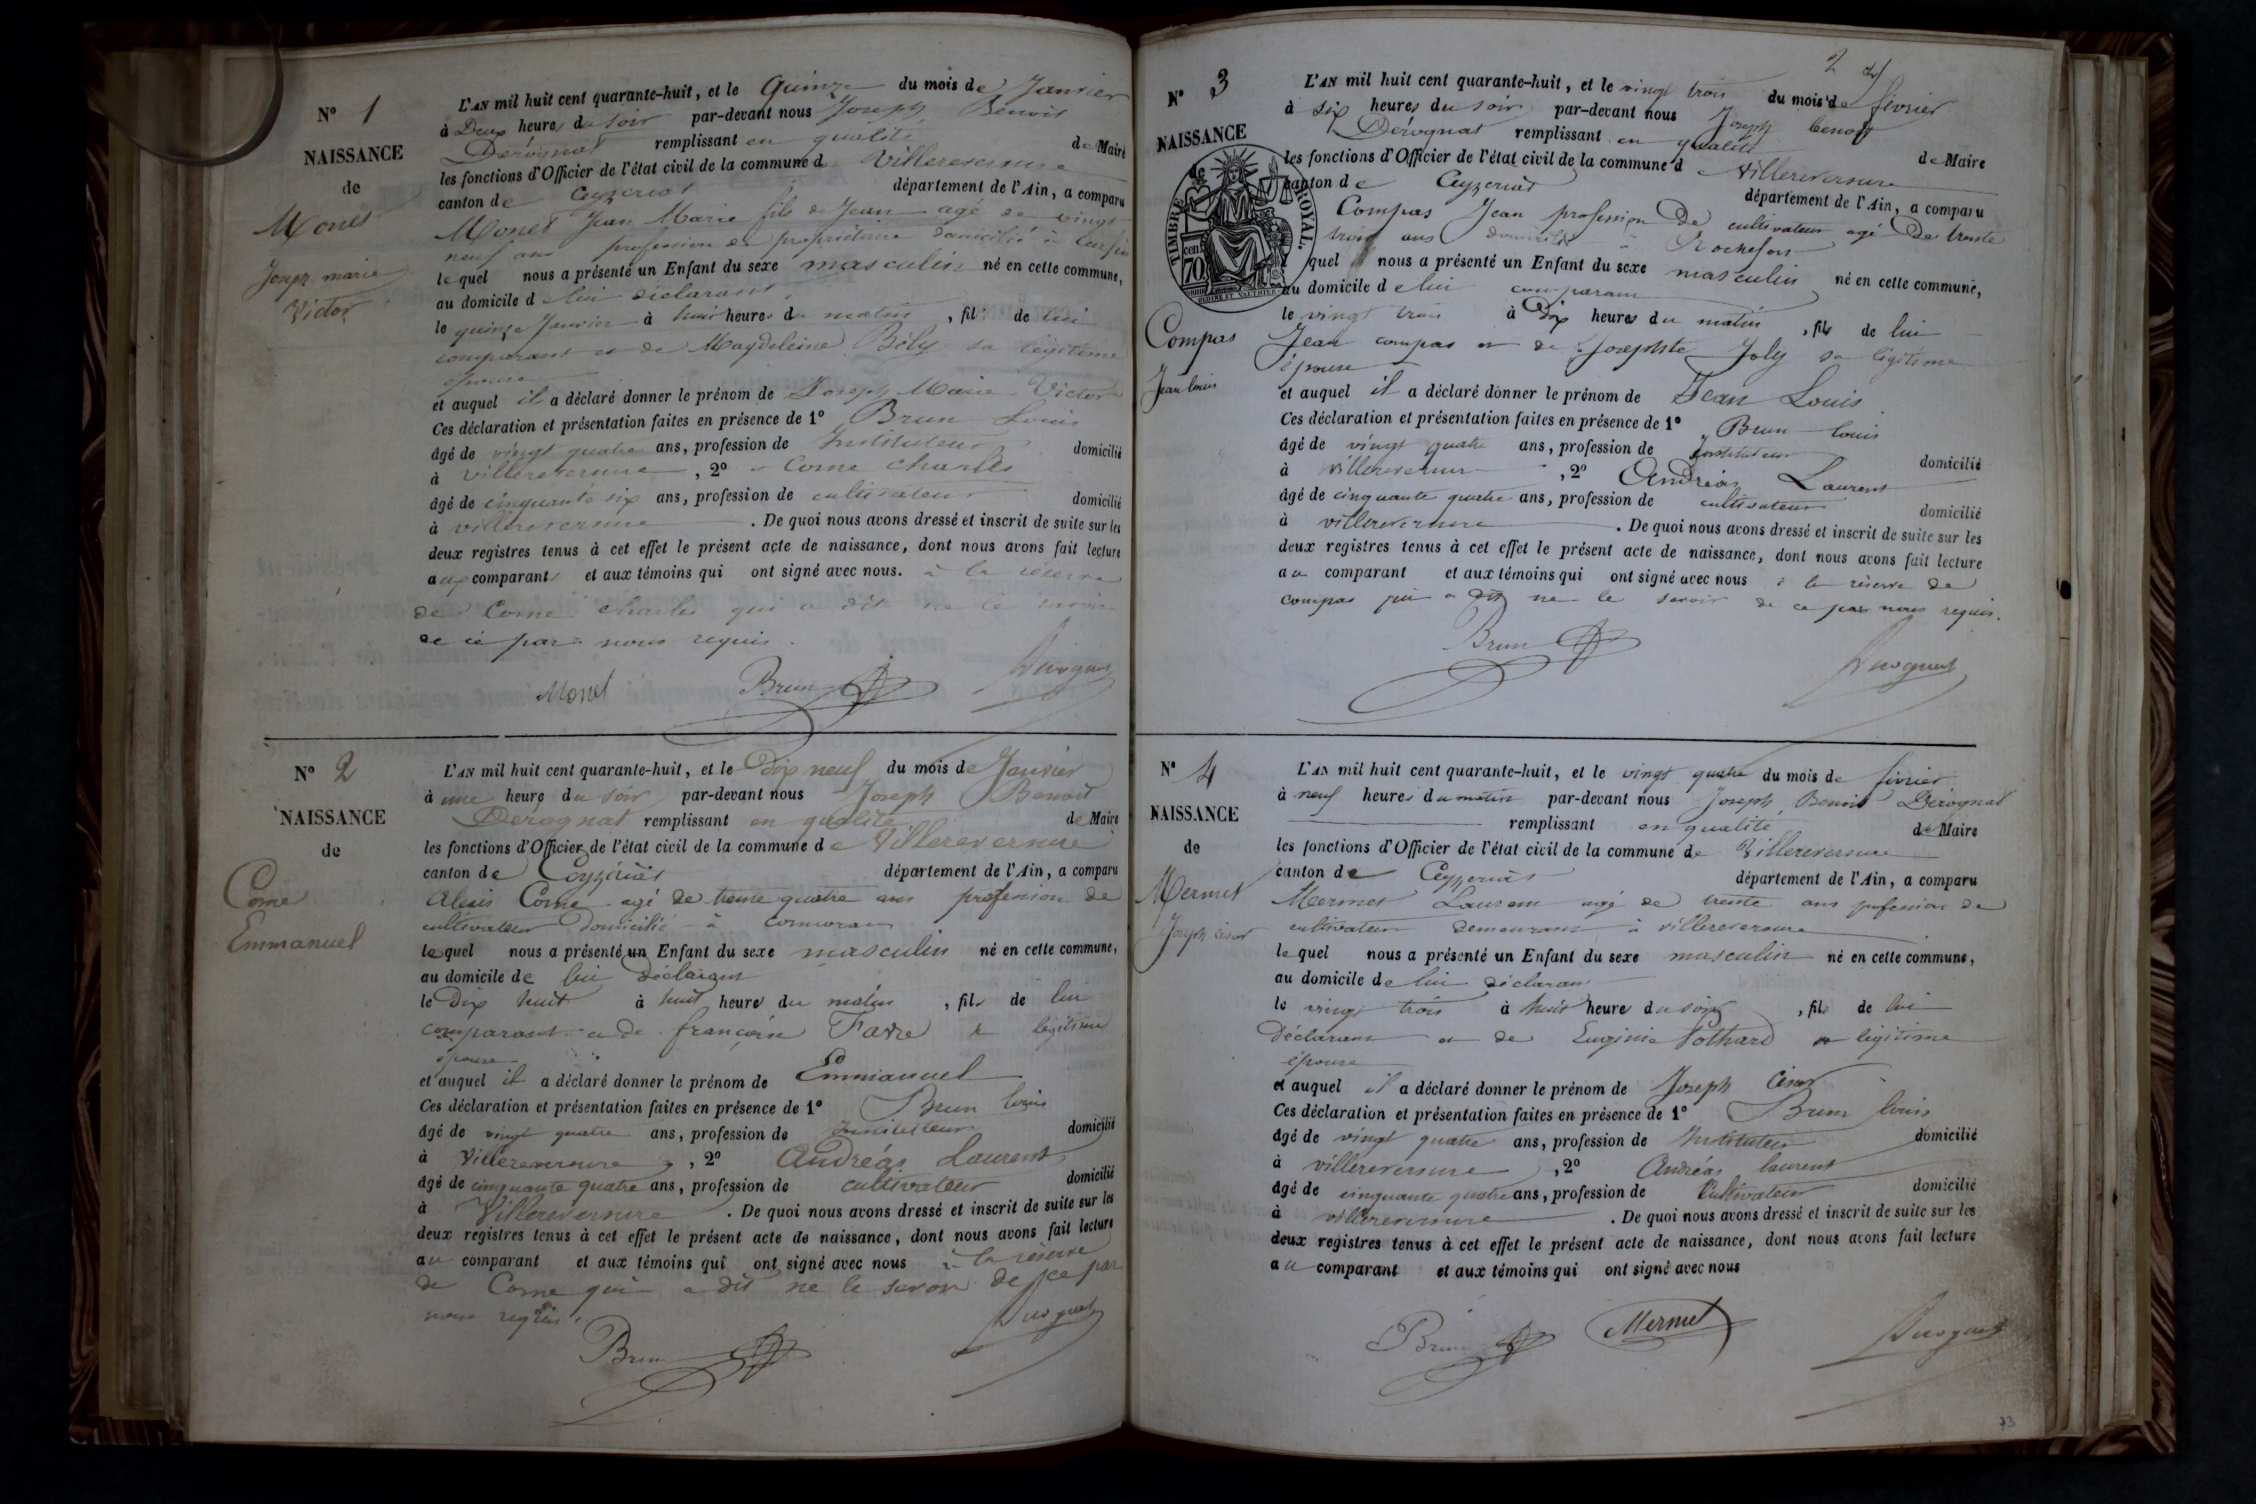 N° 1
NAISSANCE
de
Monet
Joseph marie
Victor
L'AN mil huit cent quarante-huit, et le Quinze du mois de Janvier
à Deux heures du soir par-devant nous Joseph Benoit
Dérognat remplissant en qualité de Maire
les fonctions d'Officier de l'état civil de la commune de Villereversure
canton de Ceyzeriat département de l'Ain, a comparu
Monet Jean Marie fils de Jean agé de vingt
neuf ans profession de propriétaire domicilié à
lequel nous a présenté un Enfant du sexe masculin né en cette commune,
au domicile de lui déclarant
le quinze Janvier à huit heures du matin, fils de lui
comparant et de Magdeleine Bély sa légitime
épouse
et auquel il a déclaré donner le prénom de Joseph Marie Victor
Ces déclaration et présentation faites en présence de 1° Brun Louis
âgé de vingt quatre ans, profession de Instituteur domicilié
à villereversure, 2° Corne Charles
âgé de cinquante six ans, profession de cultivateur domicilié
à villereversure. De quoi nous avons dressé et inscrit de suite sur les
deux registres tenus à cet effet le présent acte de naissance, dont nous avons fait lecture
aux comparants et aux témoins qui ont signé avec nous. à la réserve
de Corne charles qui a dit ne le savoir
de ce par nous requis.
Monet Brun Derognat
N° 2
NAISSANCE
de
Corne
Emmanuel
L'AN mil huit cent quarante-huit, et le Dix neuf du mois de Janvier
à une heure du soir par-devant nous Joseph Benoit
Derognat remplissant en qualité de Maire
les fonctions d'Officier de l'état civil de la commune de Villereversure
canton de Ceyzériat département de l'Ain, a comparu
Alexis Corne agé de trente quatre ans profession de
cultivateur domicilié à
lequel nous a présenté un Enfant du sexe masculin né en cette commune,
au domicile de lui déclarant
le Dix huit à huit heures du matin, fils de lui
comparant et de françoise Favre sa légitime
épouse
et auquel il a déclaré donner le prénom de Emmanuel
Ces déclaration et présentation faites en présence de 1° Brun louis
âgé de vingt quatre ans, profession de instituteur domicilié
à Villereversure, 2° Andréas Laurent
âgé de cinquante quatre ans, profession de cultivateur domicilié
à Villereversure. De quoi nous avons dressé et inscrit de suite sur les
deux registres tenus à cet effet le présent acte de naissance, dont nous avons fait lecture
au comparant et aux témoins qui ont signé avec nous à la réserve
de Corne qui a dit ne le savoir de ce par
nous requis.
Brun Derognat
2
N° 3
NAISSANCE
de
TIMBRE ROYAL.
70
Compas
Jean louis
L'AN mil huit cent quarante-huit, et le vingt trois du mois de février
à six heures du soir par-devant nous Joseph benoit
Dérognat remplissant en qualité de Maire
les fonctions d'Officier de l'état civil de la commune de villereversure
canton de Ceyzeriat département de l'Ain, a comparu
Compas Jean profession De cultivateur agé De trente
trois ans domicilié à Rochefort
lequel nous a présenté un Enfant du sexe masculin né en cette commune,
au domicile de lui comparant
le vingt trois à Dix heures du matin, fils de lui
Jean compas et de Josephte Joly sa légitime
épouse
et auquel il a déclaré donner le prénom de Jean Louis
Ces déclaration et présentation faites en présence de 1° Brun louis
âgé de vingt quatre ans, profession de Instituteur domicilié
à villereversure, 2° Andréas Laurent
âgé de cinquante quatre ans, profession de cultivateur domicilié
à villereversure. De quoi nous avons dressé et inscrit de suite sur les
deux registres tenus à cet effet le présent acte de naissance, dont nous avons fait lecture
au comparant et aux témoins qui ont signé avec nous à la réserve de
compas qui a dit ne le savoir de ce par nous requis.
Brun Derognat
N° 4
NAISSANCE
de
Mermet
Joseph césar
L'AN mil huit cent quarante-huit, et le vingt quatre du mois de février
à neuf heures du matin par-devant nous Joseph Benoit Dérognat
remplissant en qualité de Maire
les fonctions d'Officier de l'état civil de la commune de Villereversure
canton de Ceyzeriat département de l'Ain, a comparu
Mermet Laurent agé de trente ans profession de
cultivateur demeurant à villereversure
lequel nous a présenté un Enfant du sexe masculin né en cette commune,
au domicile de lui déclarant
le vingt trois à huit heures du soir, fils de lui
Déclarant et de Eugénie Pothard sa légitime
épouse
et auquel il a déclaré donner le prénom de Joseph César
Ces déclaration et présentation faites en présence de 1° Brun louis
âgé de vingt quatre ans, profession de Instituteur domicilié
à villereversure, 2° Andréas laurent
âgé de cinquante quatre ans, profession de Cultivateur domicilié
à villereversure. De quoi nous avons dressé et inscrit de suite sur les
deux registres tenus à cet effet le présent acte de naissance, dont nous avons fait lecture
au comparant et aux témoins qui ont signé avec nous
Brun Mermet Derognat
73